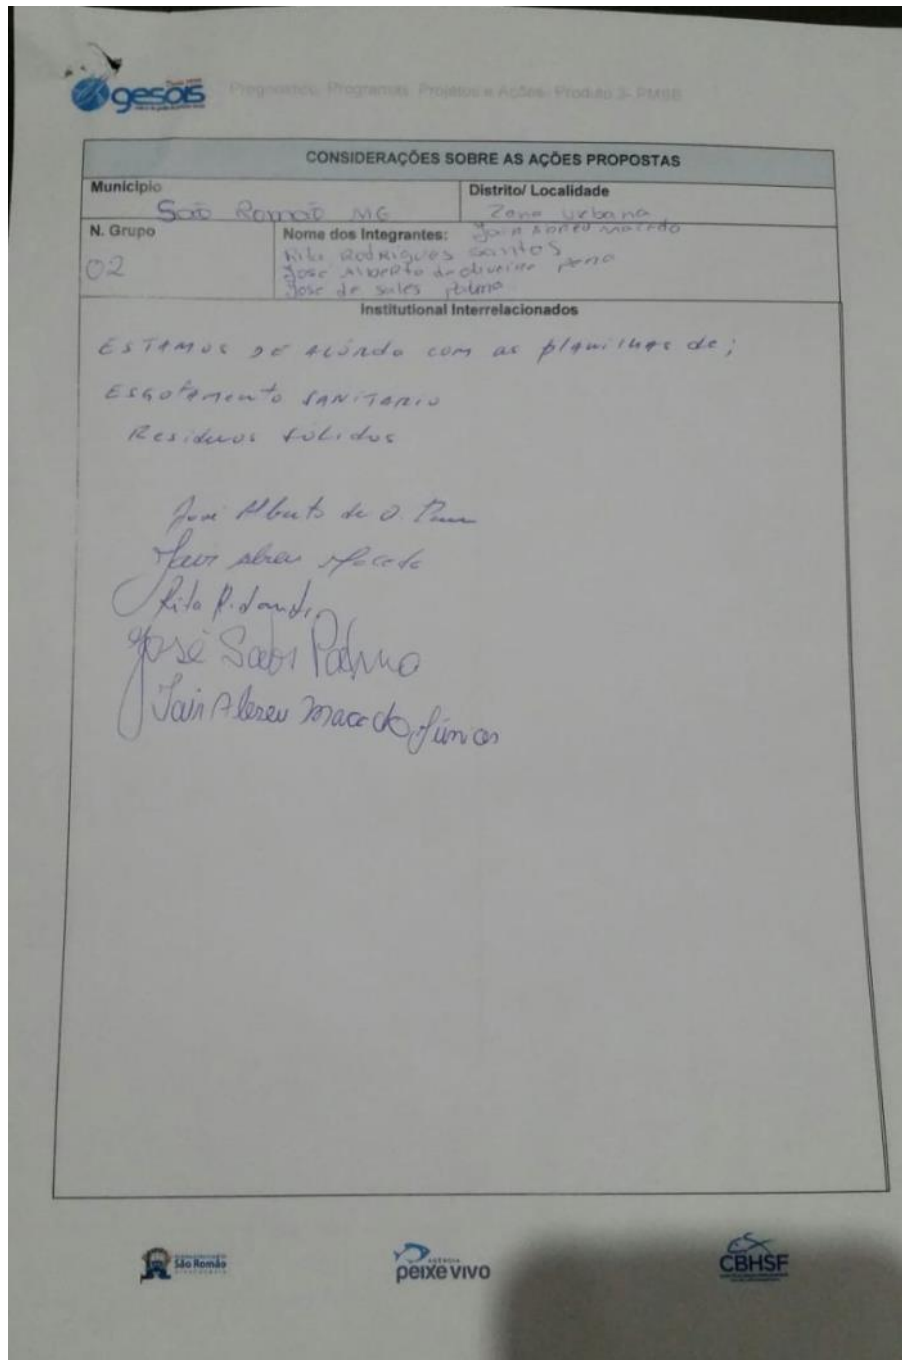 gesois
Prognóstico, Programas, Projetos e Ações- Produto 3- PMSB
CONSIDERAÇÕES SOBRE AS AÇÕES PROPOSTAS
Município
Distrito/ Localidade
São Romão MG
Zona Urbana
N. Grupo
Nome dos Integrantes:
Jair Abreu Macedo
02
Rita Rodrigues Santos
Jose Alberto de oliveira pena
Jose de Sales Palma
Institutional Interrelacionados
ESTAMOS DE ACÔRDO com as planilhas de;
ESGOTAMENTO SANITARIO
Residuos Sólidos
José Alberto de O. Pena
Jair Abreu Macedo
Rita R. Santos
José Sales Palma
Jair Abreu Macedo Júnior
São Romão
AGÊNCIA
peixe vivo
CBHSF